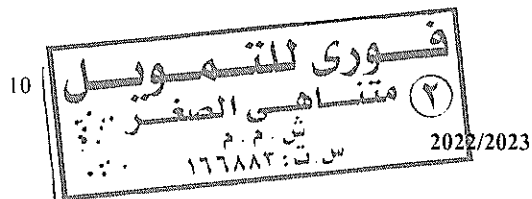 10
فورى للتمويل
متناهى الصغر ٢
ش.م.م
س.ت: ١٦٦٨٨٣
2022/2023